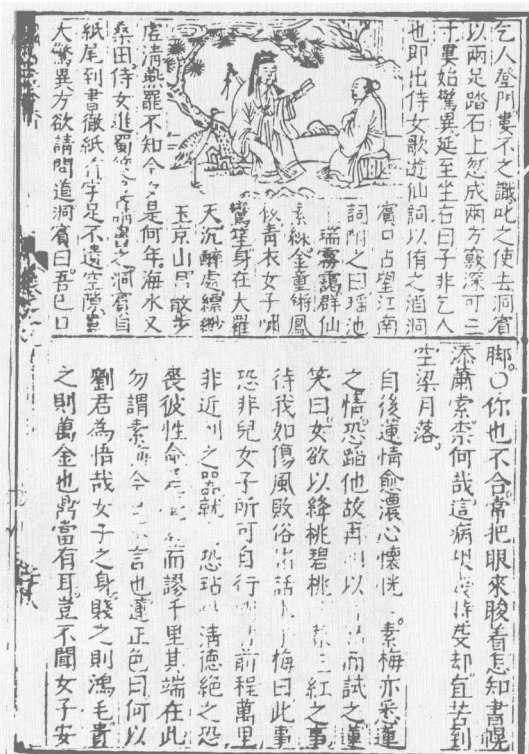 乞人登門婁不之識叱之使去洞賓
以兩足踏石上忽成兩方竅深可三
寸婁始驚異延至坐右曰子非乞人
也即出侍女歌遊仙詞以侑之酒洞
賓口占望江南
詞酧之曰瑤池
瑞霧靄群仙
素練金童鏘鳳
板青衣女子嘯
鸞笙身在大羅
天沉醉處縹緲
玉京山唱散步
虛清亂罷不知今夕是何年海水又
桑田侍女進蜀箋洞賓自
紙尾到書徹紙首字足不遺空隙婁
大驚異方欲請問道洞賓曰吾已口
脚○你也不合常把眼來睃着怎知書幌
添蕭索柰何哉這病根却直苦到
空梁月落
自後蓮情愈濃心懷恍素梅亦采蓮
之情恐蹈他故再以而試之蓮
笑曰女欲以絳桃碧桃三紅之事
待我如傷風敗俗出話梅曰此事
恐非兒女子所可自行前程萬里
非近刊之器就恐玷清德絕之恐
喪彼性命而謬千里其端在此
勿謂素今言也蓮正色曰何以
劉君為悟哉女子之身賤之則鴻毛貴
之則萬金也鼎當有耳豈不聞女子女